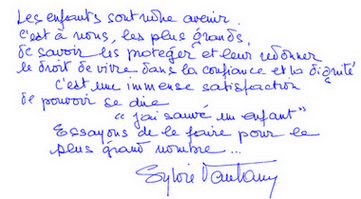 Les enfants sont notre avenir.
C'est à nous, les plus grands,
de savoir les protéger et leur redonner
le droit de vivre dans la confiance et la dignité
C'est une immense satisfaction
de pouvoir se dire
"j'ai sauvé un enfant"
Essayons de le faire pour le
plus grand nombre...
Sylvie Vartan